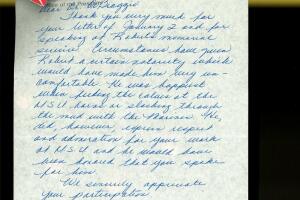 Office of the President
Dear Dr. DiBiaggio
Thank you very much for
your letter of January 2 and for
speaking at Robert's memorial
service. Circumstances have given
Robert a certain notoriety which
would have made him very un-
comfortable. He was happiest
when feeding the calves at the
M.S.U. barns or slushing through
the mud with the Marines. He
did, however, express respect
and admiration for your work
at M.S.U. and he would have
been honored that you spoke
for him.
We sincerely appreciate
your participation